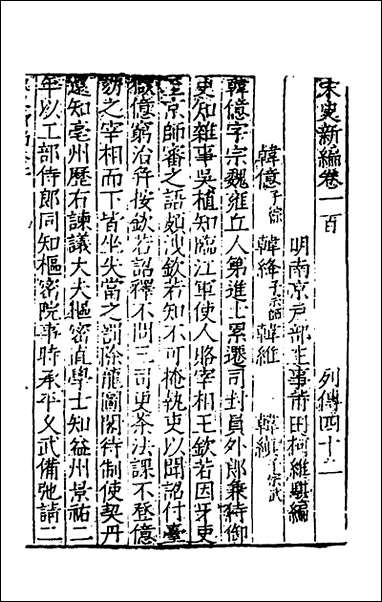 宋史新編卷一百 列傳四十二
明南京戶部主事莆田柯維騏編
韓億子宗 韓絳子宗師 韓維 韓縝子宗武
韓億字宗魏雍丘人第進士累遷司封員外郎兼侍御
史知雜事吳植知臨江軍使人賂宰相王欽若因牙吏
至京師審之語頗洩欽若知不可掩執吏以聞詔付臺
獄億窮治并按欽若詔釋不問三司更茶法課不登億
劾之宰相而下皆坐失當之罰除龍圖閣待制使契丹
還知亳州歷右諫議大夫樞密直學士知益州景祐二
年以工部侍郎同知樞密院事時承平久武備弛請二